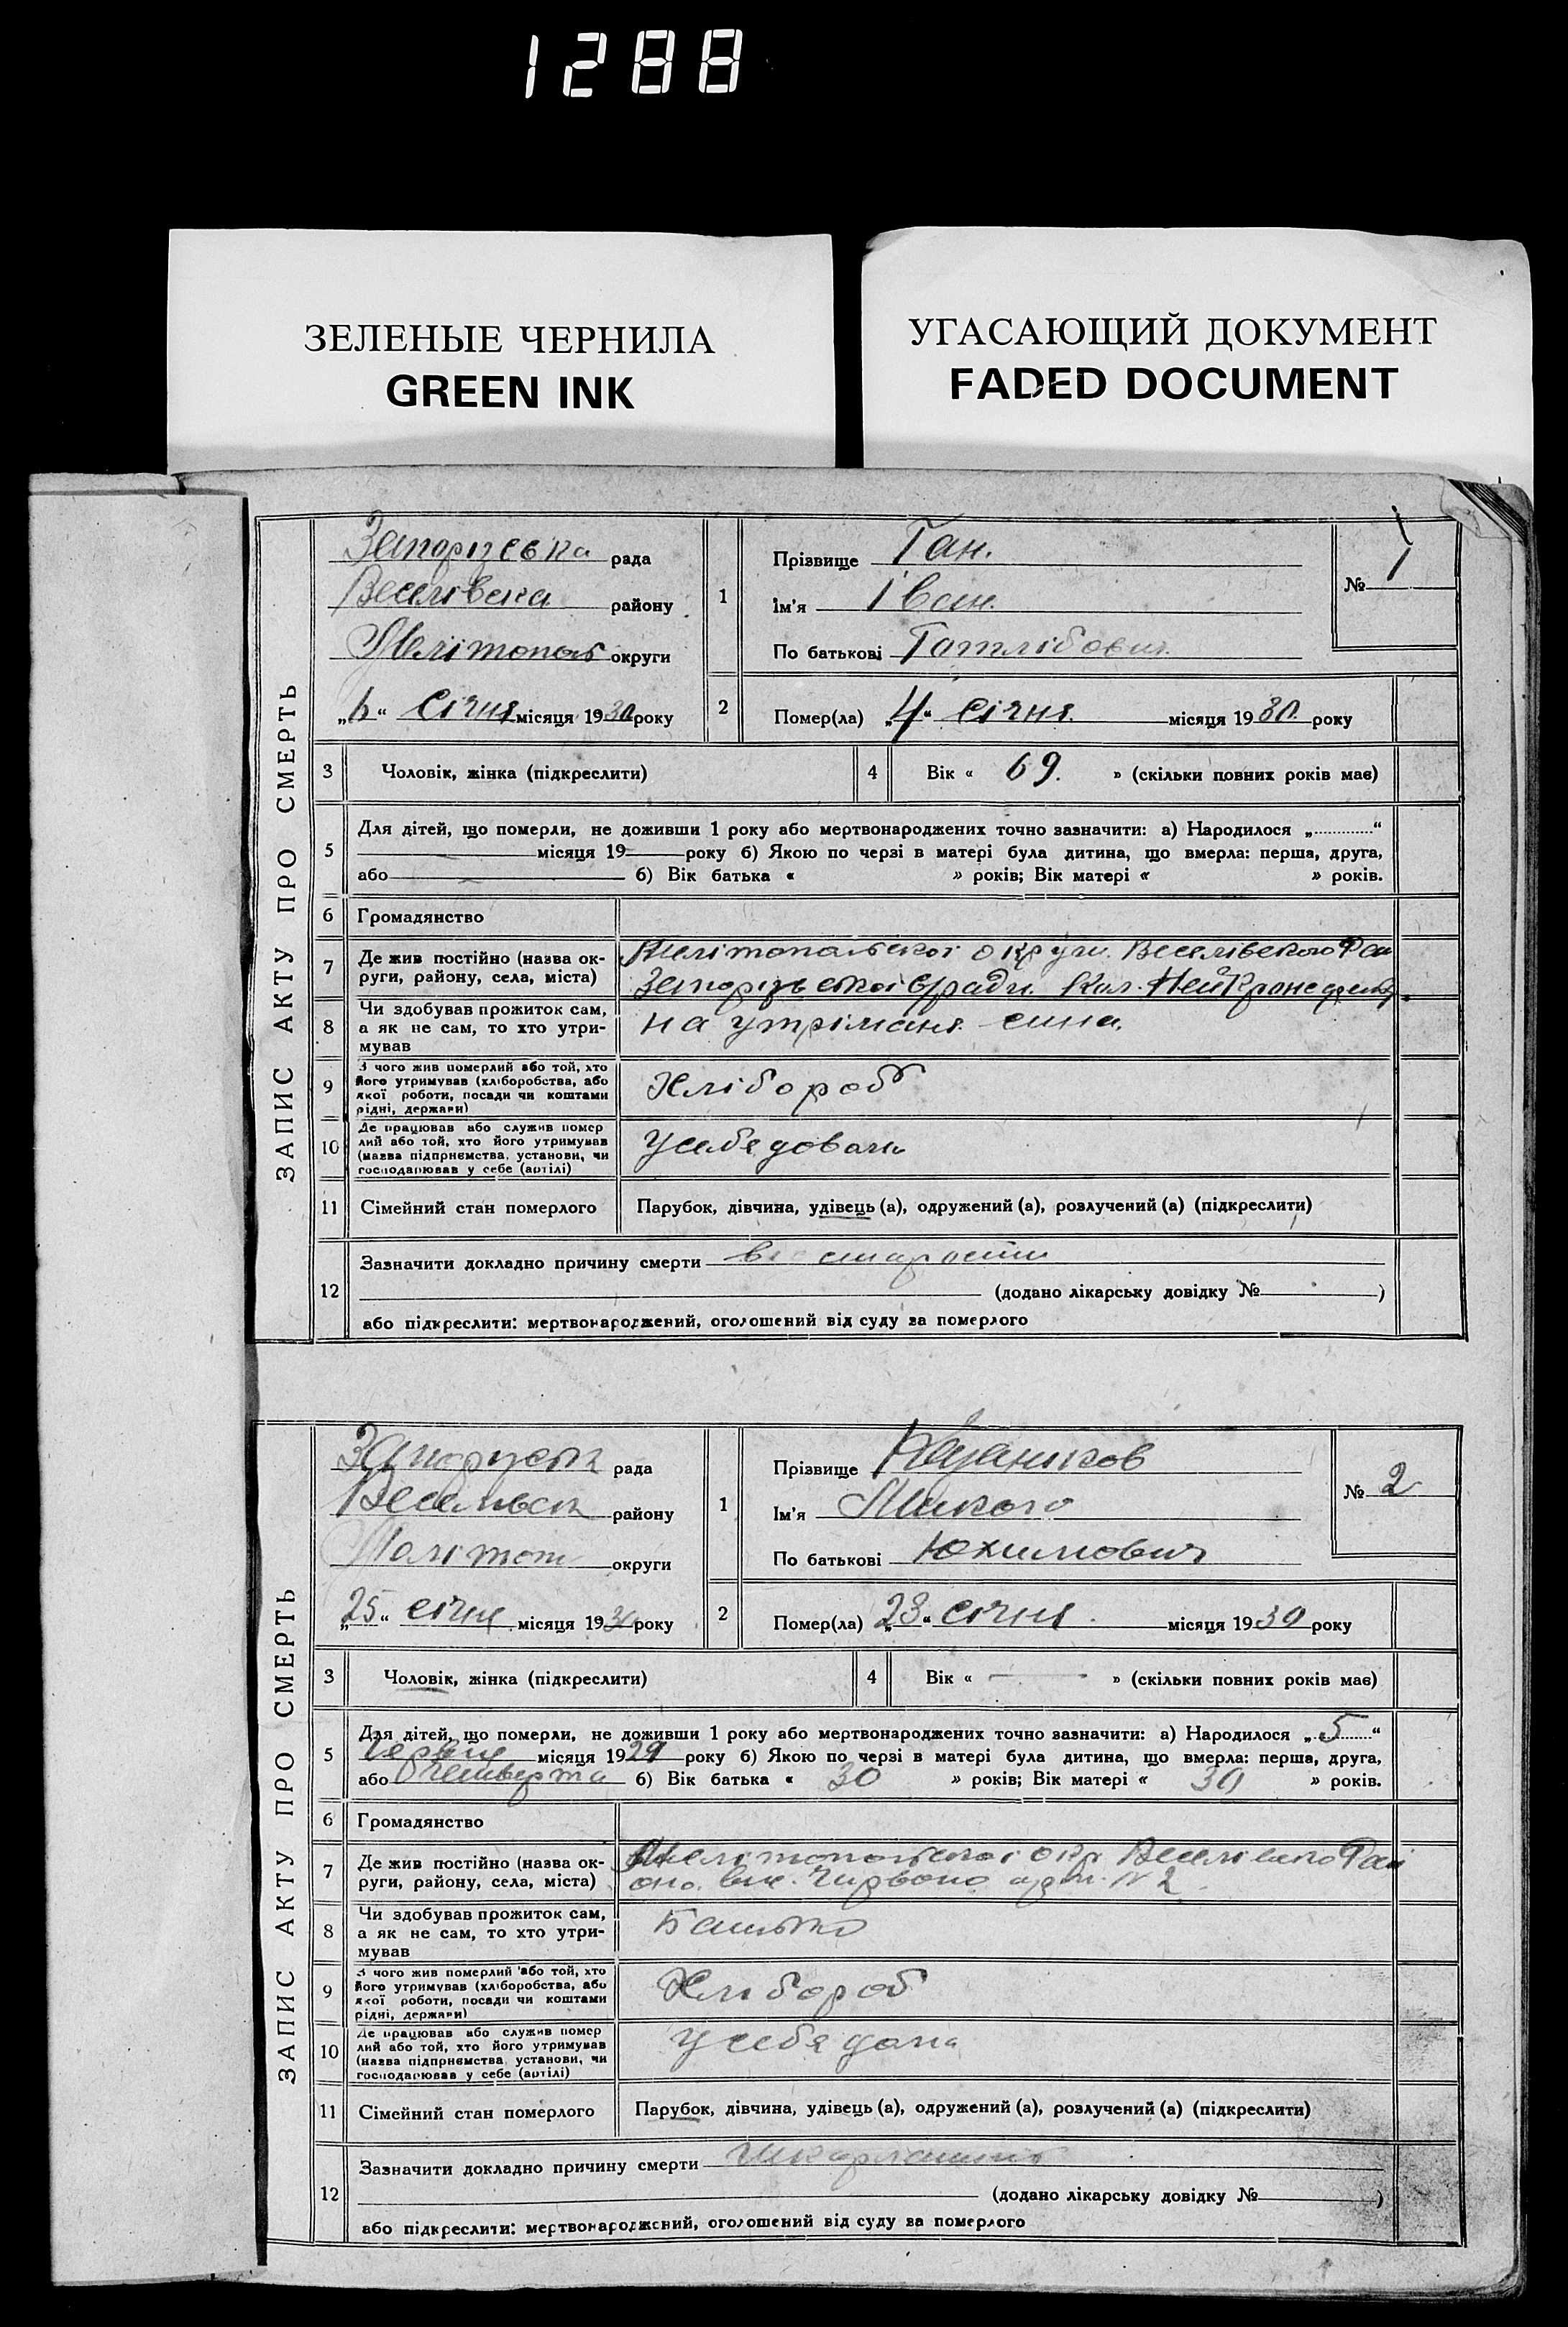 1288
ЗЕЛЕНЫЕ ЧЕРНИЛА
GREEN INK
УГАСАЮЩИЙ ДОКУМЕНТ
FADED DOCUMENT
ЗАПИС АКТУ ПРО СМЕРТЬ
рада
району
округи
„6“ січня місяця 1930 року
1
Прізвище Ган.
Ім'я Іван.
По батькові Готлібович
№ 1
2
Помер(ла) „4“ січня місяця 1930 року
3 Чоловік, жінка (підкреслити)
4 Вік « 69. » (скільки повних років має)
5
Для дітей, що померли, не доживши 1 року або мертвонароджених точно зазначити: а) Народилося „ “
місяця 19 року б) Якою по черзі в матері була дитина, що вмерла: перша, друга,
або б) Вік батька « » років; Вік матері « » років.
6 Громадянство
7
Де жив постійно (назва ок-
руги, району, села, міста)
Мелітопольської округи. Веселівского Рай
ради. Кол.
8
Чи здобував прожиток сам,
а як не сам, то хто утри-
мував
на утріманя сина.
9
З чого жив померлий або той, хто
його утримував (хліборобства, або
якої роботи, посади чи коштами
рідні, держави)
Хлібороб
10
Де працював або служив помер
лий або той, хто його утримував
(назва підприємства, установи, чи
господарював у себе (артілі)
у себя
11 Сімейний стан померлого
Парубок, дівчина, удівець (а), одружений (а), розлучений (а) (підкреслити)
12
Зазначити докладно причину смерти старости
(додано лікарську довідку № )
або підкреслити: мертвонароджений, оголошений від суду за померлого
ЗАПИС АКТУ ПРО СМЕРТЬ
рада
району
округи
„25“ січня місяця 1930 року
1
Прізвище
Ім'я Микола
По батькові Юхимович
№ 2
2
Помер(ла) „23“ січня місяця 1930 року
3 Чоловік, жінка (підкреслити)
4 Вік « — » (скільки повних років має)
5
Для дітей, що померли, не доживши 1 року або мертвонароджених точно зазначити: а) Народилося „5“
місяця 1929 року б) Якою по черзі в матері була дитина, що вмерла: перша, друга,
або четверта б) Вік батька « 30 » років; Вік матері « 30 » років.
6 Громадянство
7
Де жив постійно (назва ок-
руги, району, села, міста)
Рай
№ 2
8
Чи здобував прожиток сам,
а як не сам, то хто утри-
мував
Батько
9
З чого жив померлий або той, хто
його утримував (хліборобства, або
якої роботи, посади чи коштами
рідні, держави)
Хлібороб
10
Де працював або служив помер
лий або той, хто його утримував
(назва підприємства, установи, чи
господарював у себе (артілі)
у себя дома
11 Сімейний стан померлого
Парубок, дівчина, удівець (а), одружений (а), розлучений (а) (підкреслити)
12
Зазначити докладно причину смерти
(додано лікарську довідку № )
або підкреслити: мертвонароджений, оголошений від суду за померлого